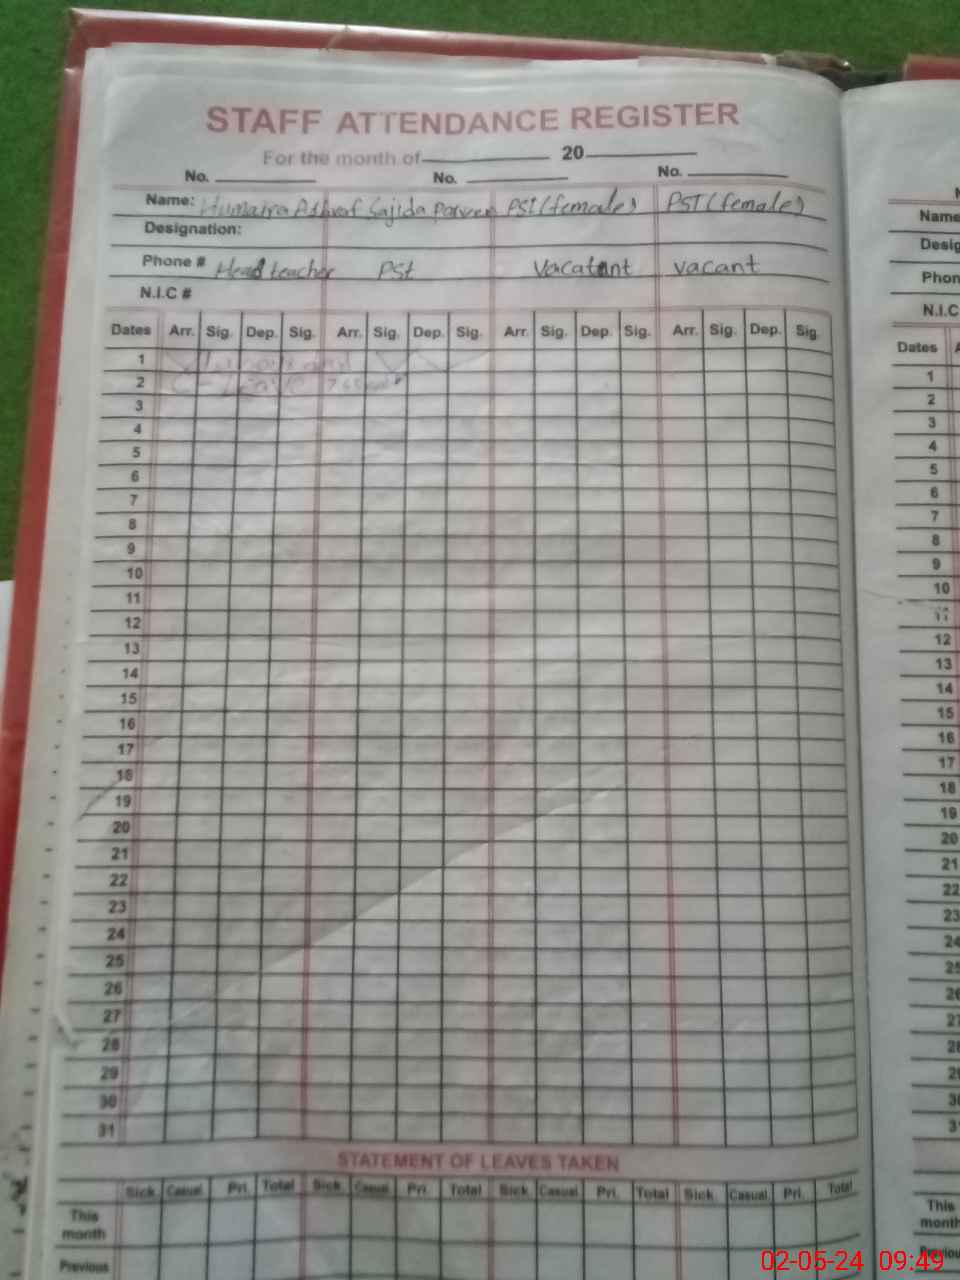 STAFF ATTENDANCE REGISTER
For the month of 20
No. No. No.
Name: Humaira Ashraf Sajida Parveen PST (female) PST (female)
Designation:
Phone # Head teacher PSt Vacatant vacant
N.I.C #
Dates Arr. Sig. Dep. Sig. Arr. Sig. Dep. Sig. Arr. Sig. Dep. Sig. Arr. Sig. Dep. Sig.
1
2 C - Leave
3
4
5
6
7
8
9
10
11
12
13
14
15
16
17
18
19
20
21
22
23
24
25
26
27
28
29
30
31
STATEMENT OF LEAVES TAKEN
Sick Casual Pri. Total Sick Casual Pri. Total Sick Casual Pri. Total Sick Casual. Pri. Total
This
month
Previous
Name
Desig
Phon
N.I.C
Dates
1
2
3
4
5
6
7
8
9
10
11
12
13
14
15
16
17
18
19
20
21
22
23
24
25
26
27
28
29
30
31
This
month
Previou
02-05-24 09:49